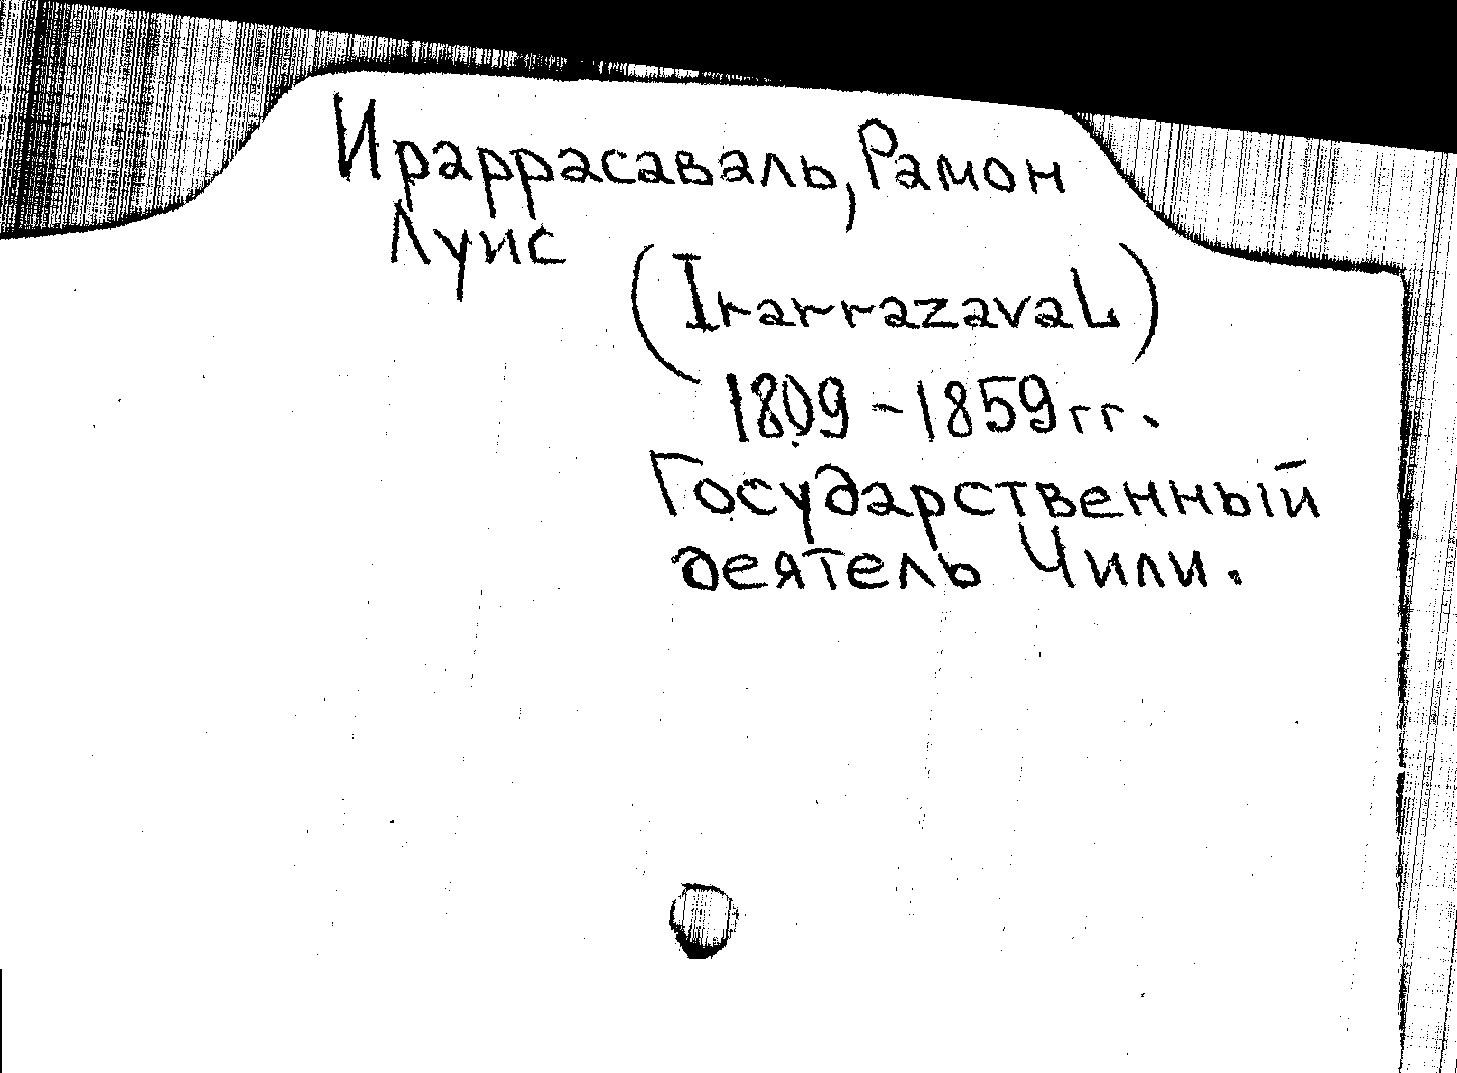 Ираррасаваль, Рамон
Луис
(Irarrazaval)
1809-1859гг.
Государственный
деятель Чили.